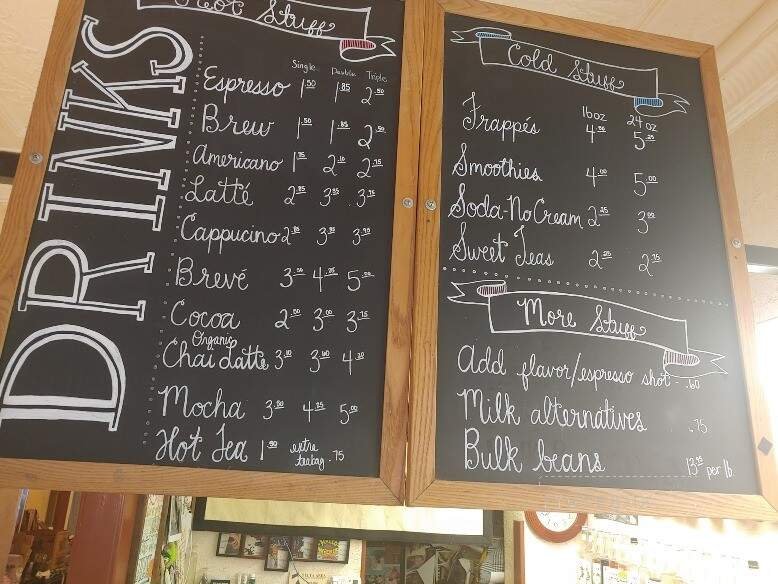 DRINKS
Hot Stuff
Single Double Triple
Espresso 1.50 1.85 2.50
Brew 1.50 1.85 2.50
Americano 1.75 2.10 2.75
Latté 2.95 3.35 3.75
Cappucino 2.95 3.35
Brevé 4.25
Cocoa 2.50 3.00 3.75
Organic
Chai Latte
Mocha 4.25
Hot Tea 1.90 extra
teabag .75
Cold Stuff
16oz 24 oz
Frappés 4.50 5.25
Smoothies 4.00 5.00
Soda-No Cream 2.25 3.00
Sweet Teas 2.25 2.75
More Stuff
Add flavor/espresso shot - .60
Milk alternatives .75
Bulk beans 13.95 per lb.